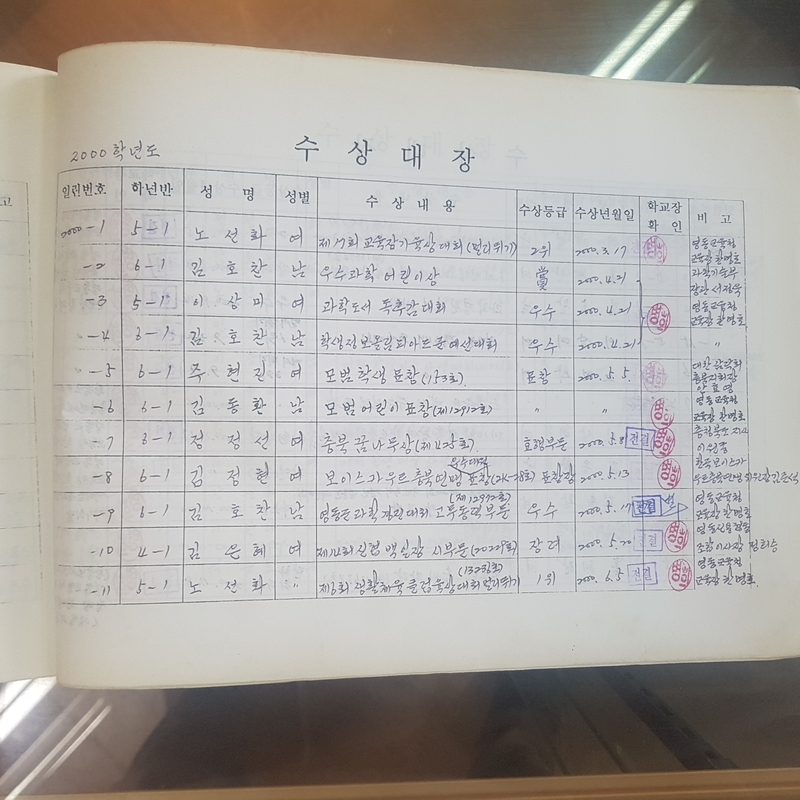 2000학년도
수상대장
일련번호 학년반 성명 성별 수상내용 수상등급 수상년월일 학교장 확인 비고
2000-1 5-1 노선화 여 제17회 교육장기육상대회(멀리뛰기) 2위 2000.3.17 영동교육청 교육장 한명호
-2 6-1 김호찬 남 우수과학어린이상 賞 2000.4.21 과학기술부 장관 서정욱
-3 5-1 이상미 여 과학도서 독후감대회 우수 2000.4.21 영동교육청 교육장 한명호
-4 6-1 김호찬 남 학생정보올림피아드군예선대회 우수 2000.4.21 〃
-5 6-1 주현진 여 모범학생 표창(173회) 표창 2000.5.5
-6 6-1 김동환 남 모범어린이표창(제1292호) 〃 〃 영동교육청 교육장 한명호
-7 6-1 정정선 여 충북 꿈나무상 효행부문 2000.5.8 전결 충청북도
-8 6-1 김정현 여 보이스카우트충북연맹 표창 표창장 2000.5.13 한국보이스카
우수대원
-9 6-1 김호찬 남 영동군과학경진대회 고무동력부문 우수 2000.5.17 전결 영동교육청 교육장 한명호
(제1292호)
-10 4-1 김은혜 여 제14회신협백일장 시부문 장려 2000.5.20 전결
-11 5-1 노선화 〃 제6회생활체육군 육상대회멀리뛰기 1위 2000.6.5 전결 영동교육청 교육장 한명호